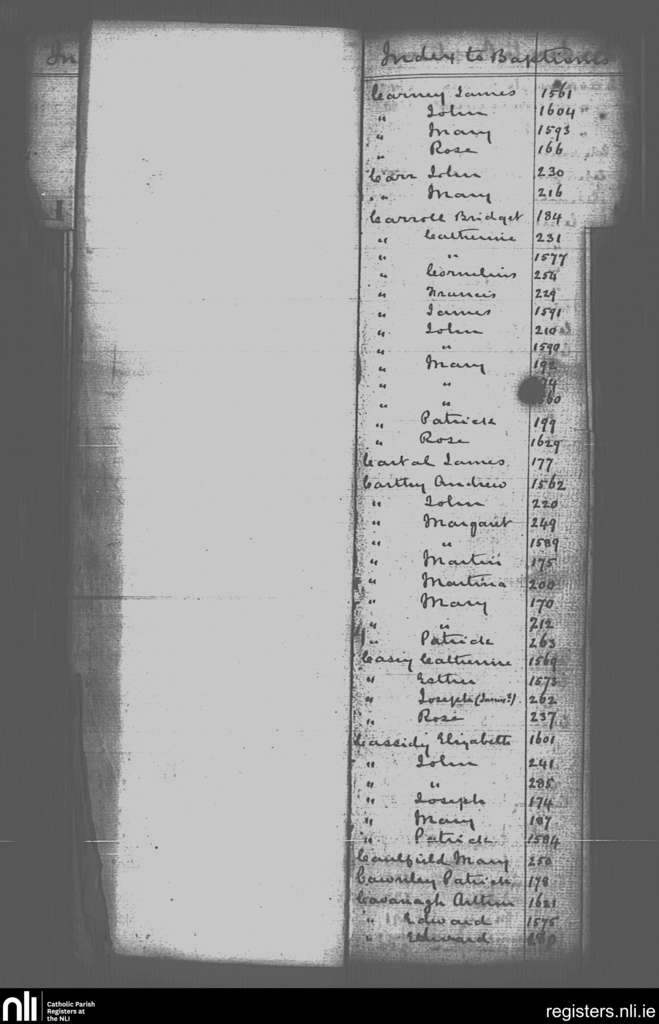 In
Index to Baptisms
Carney James 1561
" John 1604
" Mary 1593
" Rose 166
Carr John 230
" Mary 216
Carroll Bridget 184
" Catherine 231
" " 1577
" Cornelius 254
" Francis 229
" James 1591
" John 210
" " 1590
" Mary 192
" "
" "
" Patrick 199
" Rose 1629
Cartal James 177
Carthy Andrew 1562
" John 220
" Margaret 249
" " 1589
" Martin 175
" Martina 200
" Mary 170
" " 212
" Patrick 263
Casey Catherine 1569
" Esther 1573
" Joseph (James?) 262
" Rose 237
Cassidy Elizabeth 1601
" John 241
" " 285
" Joseph 174
" Mary 187
" Patrick 1584
Caulfield Mary 250
Cawley Patrick 178
Cavanagh Arthur 1621
" Edward 1575
" Edward
nli
Catholic Parish
Registers at
the NLI
registers.nli.ie